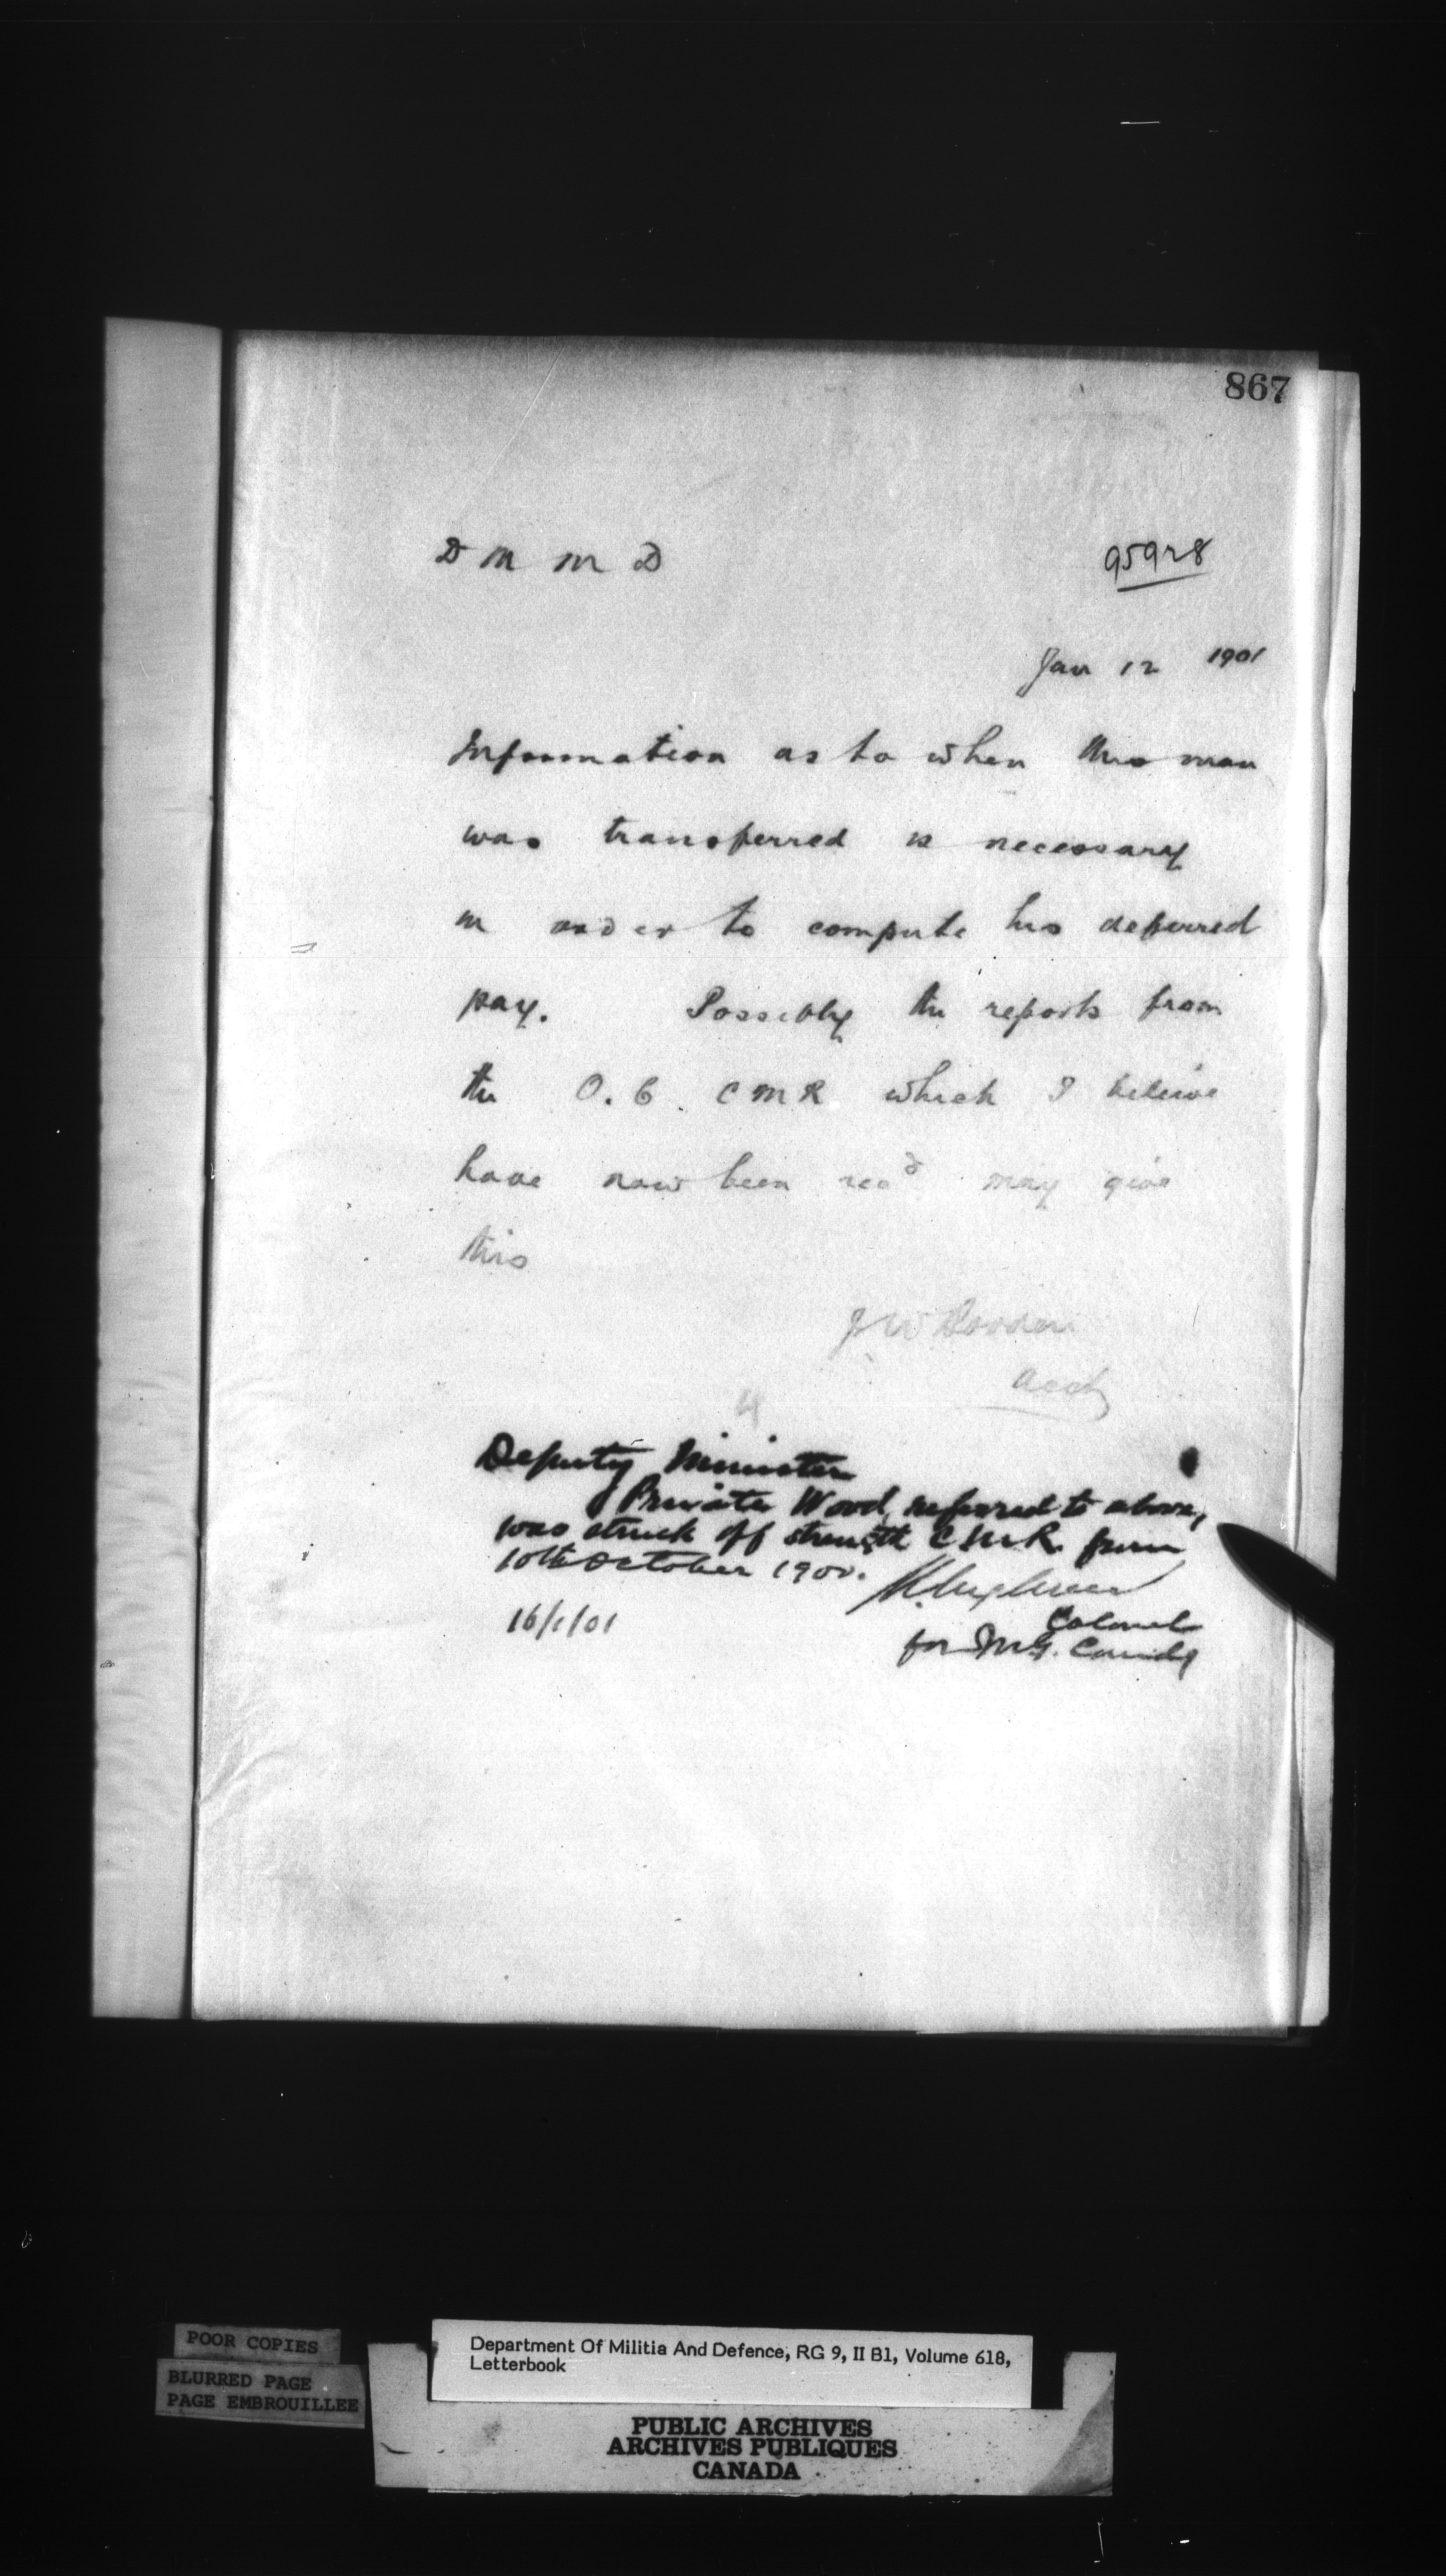 867
D M M D
95928
Jan 12 1901
Information as to when this man
was transferred is necessary
in order to compute his deferred
pay. Possibly the reports from
the O.C. CMR which I believe
have now been recd may give
this
J W Borden
Acct
Deputy Minister
Private Wood, referred to above,
was struck off strength C.M.R. from
10th October 1900.
Colonel
16/1/01
for M.G. Comdg
POOR COPIES
BLURRED PAGE
PAGE EMBROUILLEE
Department Of Militia And Defence, RG 9, II B1, Volume 618,
Letterbook
PUBLIC ARCHIVES
ARCHIVES PUBLIQUES
CANADA